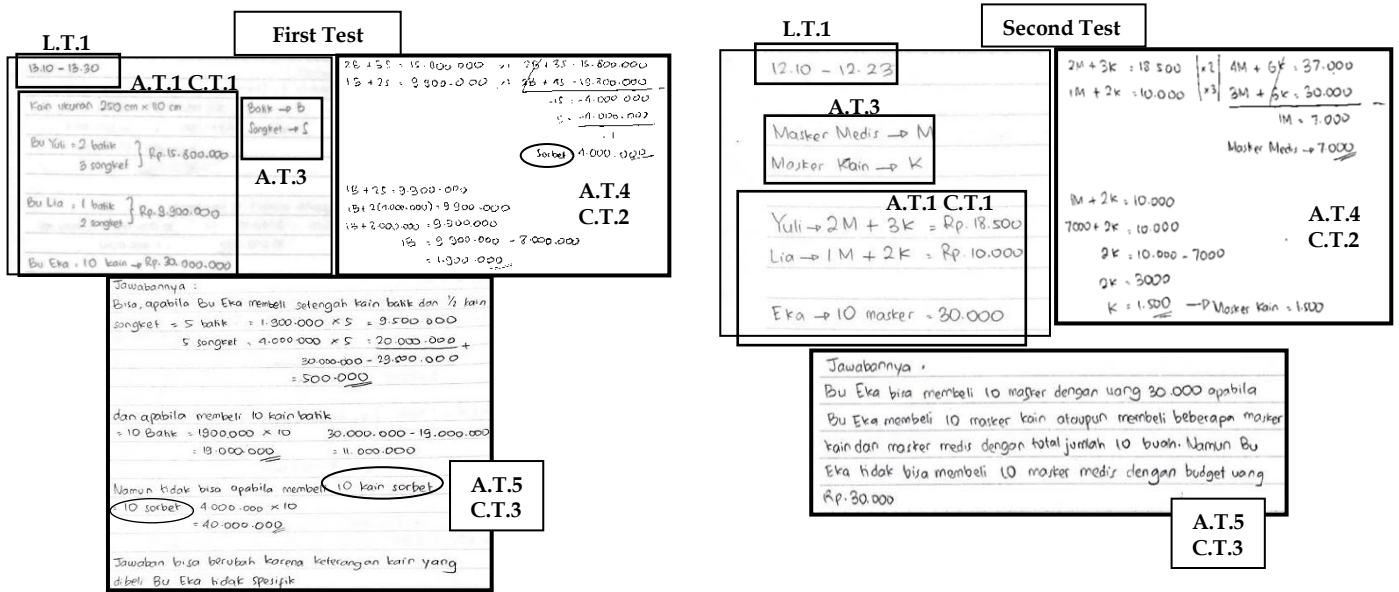 First Test
L.T.1
13.10 - 13.30
A.T.1 C.T.1
Kain ukuran 250 cm x 110 cm
Bu Yuli = 2 batik
3 songket
Rp. 15.800.000
Bu Lia = 1 batik
2 songket
Rp. 9.900.000
Bu Eka = 10 kain → Rp. 30.000.000
Batik → B
Songket → S
A.T.3
2B + 3S = 15.800.000 x1 2B + 3S = 15.800.000
1B + 2S = 9.900.000 x2 2B + 4S = 19.800.000
-1S = -4.000.000
S = -4.000.000
-1
Sorbet 4.000.000
1B + 2S = 9.900.000
1B + 2(4.000.000) = 9.900.000
1B + 8.000.000 = 9.900.000
1B = 9.900.000 - 8.000.000
= 1.900.000
A.T.4
C.T.2
Jawabannya :
Bisa, apabila Bu Eka membeli setengah kain batik dan 1/2 kain
songket = 5 batik = 1.900.000 x 5 = 9.500.000
5 songket = 4.000.000 x 5 = 20.000.000 +
30.000.000 - 29.500.000
= 500.000
dan apabila membeli 10 kain batik
= 10 Batik = 1900.000 x 10 30.000.000 - 19.000.000
= 19.000.000 = 11.000.000
Namun tidak bisa apabila membeli 10 kain sorbet
= 10 sorbet 4.000.000 x 10
= 40.000.000
Jawaban bisa berubah karena keterangan kain yang
dibeli Bu Eka tidak spesifik
A.T.5
C.T.3
Second Test
L.T.1
12.10 - 12.23
A.T.3
Masker Medis → M
Masker Kain → K
A.T.1 C.T.1
Yuli → 2M + 3K = Rp. 18.500
Lia → 1M + 2K = Rp. 10.000
Eka → 10 masker = 30.000
2M + 3K = 18.500 |x2| 4M + 6K = 37.000
1M + 2K = 10.000 |x3| 3M + 6K = 30.000 -
1M = 7.000
Masker Medis → 7.000
1M + 2K = 10.000
7000 + 2K = 10.000
2K = 10.000 - 7000
2K = 3000
K = 1.500 → Masker Kain = 1.500
A.T.4
C.T.2
Jawabannya .
Bu Eka bisa membeli 10 masker dengan uang 30.000 apabila
Bu Eka membeli 10 masker kain ataupun membeli beberapa masker
kain dan masker medis dengan total jumlah 10 buah. Namun Bu
Eka tidak bisa membeli 10 masker medis dengan budget uang
Rp. 30.000
A.T.5
C.T.3